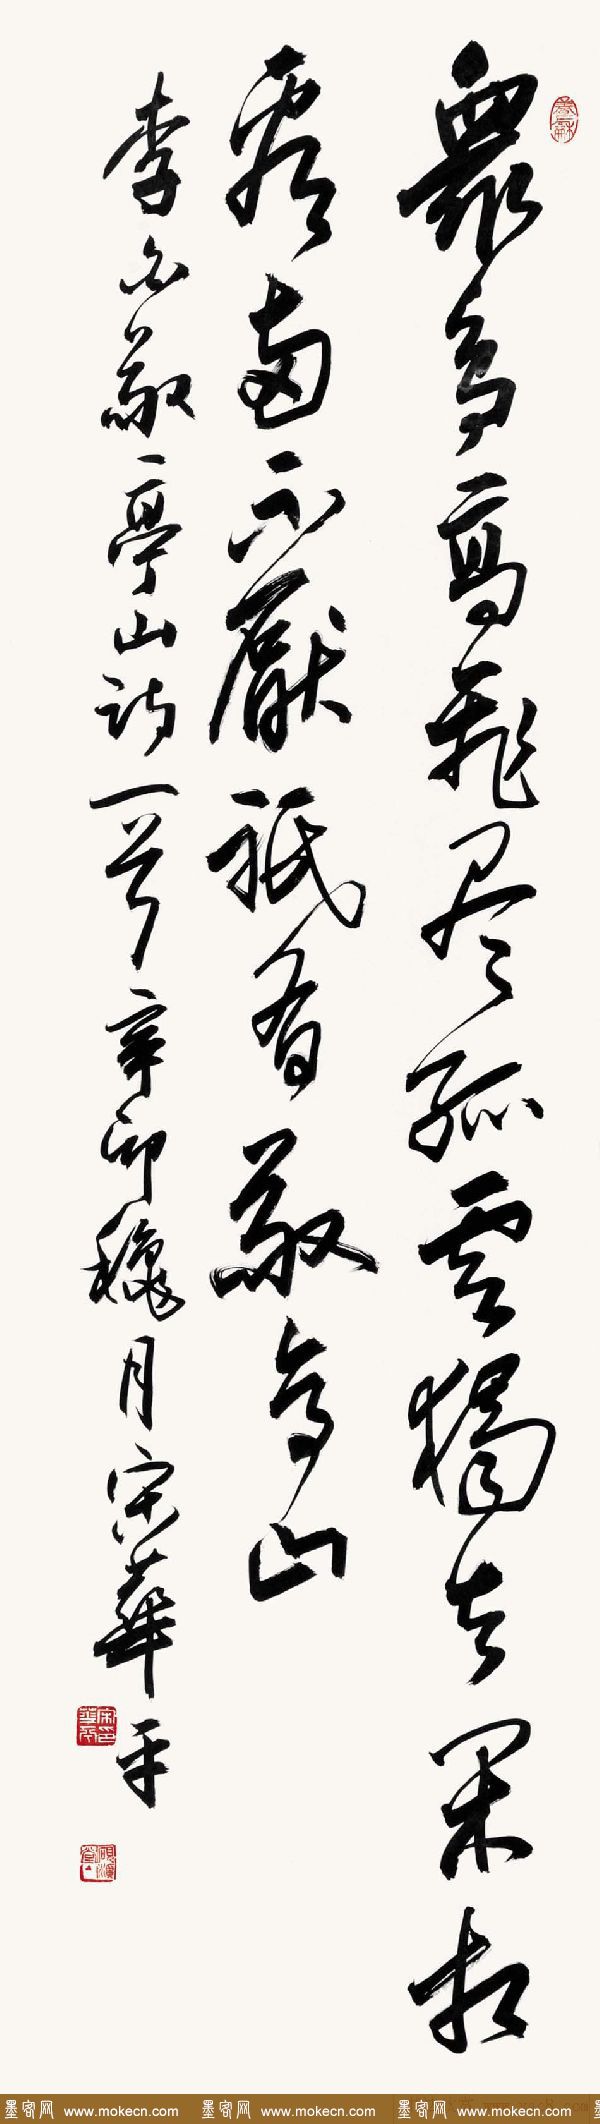 眾鳥高飛尽孤雲獨去閑相
看兩不厭祇有敬亭山
李白敬亭山詩一首辛卯穐月宋華平
墨客网 www.mokecn.com 墨客网 www.mokecn.com 墨客网 www.mokecn.com 墨客网 www.mokecn.com